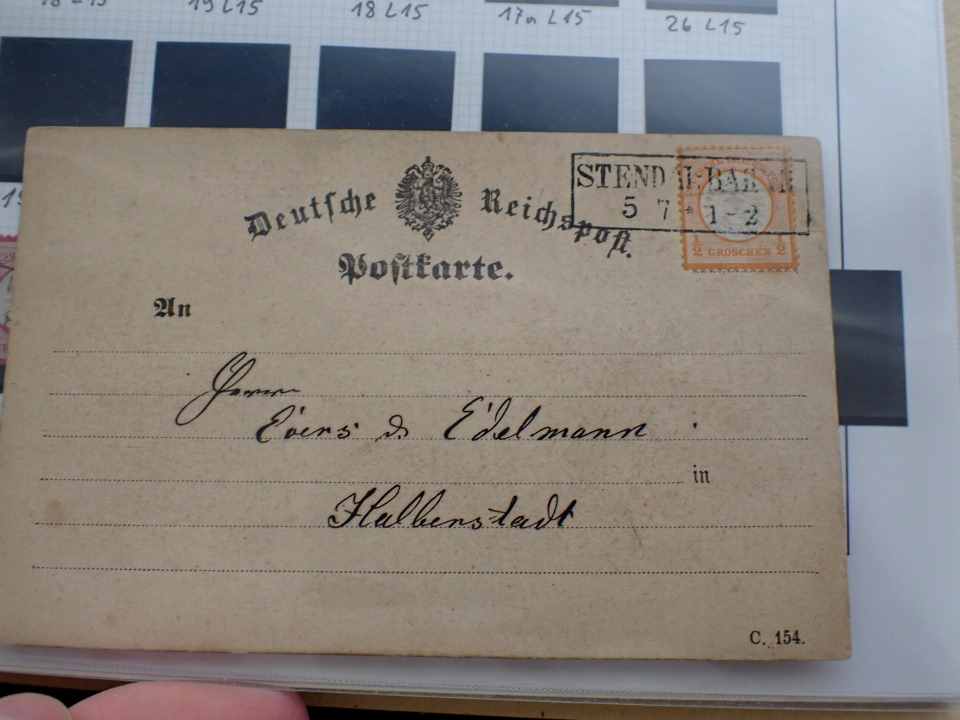 19 L15
18 L15
17a L15
26 L15
Deutsche Reichspost.
Postkarte.
STENDAL BAHNH
5 7 * 1-2
½ GROSCHEN ½
An
Herrn
Evers & Edelmann
in
Halberstadt
C. 154.